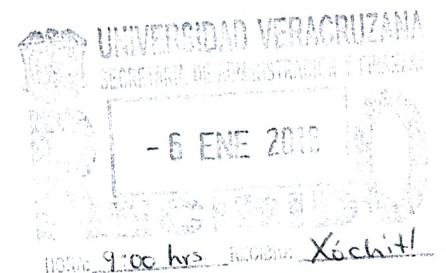 UNIVERSIDAD VERACRUZANA
SECRETARÍA DE ADMINISTRACIÓN Y FINANZAS
- 6 ENE
RECIBIDO
HORA: 9:00 hrs RECIBIDA: Xóchitl